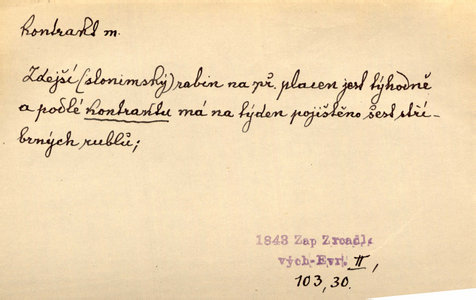 kontrakt m.
Zdejší (slonimský) rabín na př. placen jest týhodně
a podlé kontraktu má na týden pojištěno šest stří-
brných rublů;
1843 Zap Zrcadl.
vých-Evr. II,
103, 30.